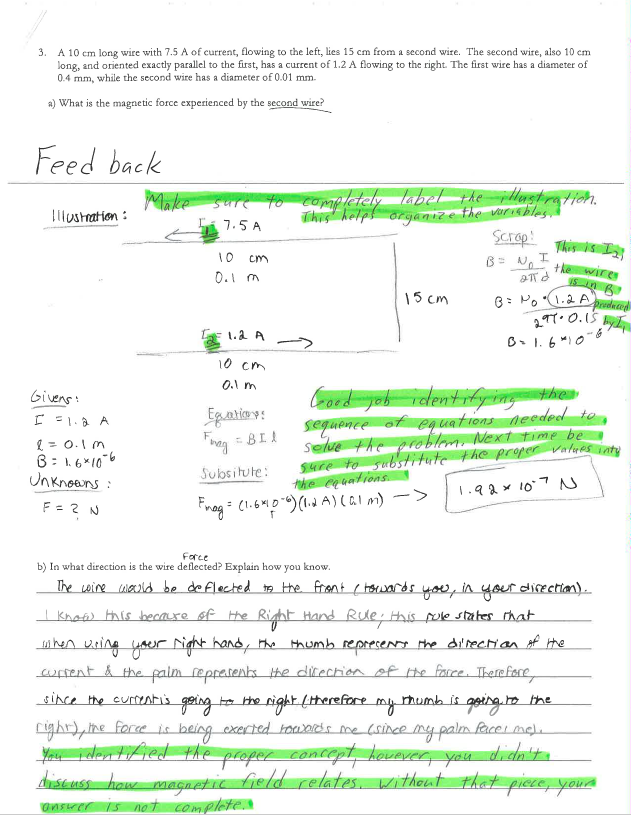 3. A 10 cm long wire with 7.5 A of current, flowing to the left, lies 15 cm from a second wire. The second wire, also 10 cm
long, and oriented exactly parallel to the first, has a current of 1.2 A flowing to the right. The first wire has a diameter of
0.4 mm, while the second wire has a diameter of 0.01 mm.
a) What is the magnetic force experienced by the second wire?
Feed back
Make sure to completely label the illustration.
This helps organize the variables.
Illustration:
I₁ 7.5 A
10 cm
0.1 m
15 cm
I₂ = 1.2 A
10 cm
0.1 m
Scrap:
B = N₀ I
2πd
B = N₀ · 1.2 A
2π · 0.15
B = 1.6 × 10⁻⁶
This is I₂;
the wire
is in B
produced
by I₁
Givens:
I = 1.2 A
l = 0.1 m
B = 1.6×10⁻⁶
Unknowns:
F = ? N
Equations:
Fmag = B I l
Substitute:
Fmag = (1.6×10⁻⁶)(1.2 A)(0.1 m) →
1.92 × 10⁻⁷ N
Good job identifying the
sequence of equations needed to
solve the problem. Next time be
sure to substitute the proper values into
the equations.
Force
b) In what direction is the wire deflected? Explain how you know.
The wire would be deflected to the front (towards you, in your direction).
I know this because of the Right Hand Rule; this rule states that
when using your right hand, the thumb represents the direction of the
current & the palm represents the direction of the force. Therefore,
since the current is going to the right (therefore my thumb is going to the
right), the force is being exerted towards me (since my palm faces me).
You identified the proper concept, however, you didn't
discuss how magnetic field relates. Without that piece, your
answer is not complete.